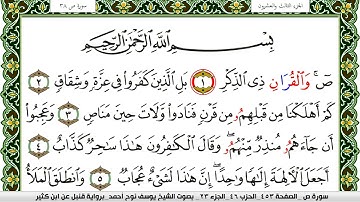 الجزء الثالث والعشرون
سورة ص ٣٨
بِسْمِ اللَّهِ الرَّحْمَٰنِ الرَّحِيمِ
صٓ ۚ وَالْقُرَانِ ذِي الذِّكْرِ ١ بَلِ الَّذِينَ كَفَرُوا فِي عِزَّةٍ وَشِقَاقٍ ٢
كَمْ أَهْلَكْنَا مِن قَبْلِهِمُ مِن قَرْنٍ فَنَادَوا وَّلَاتَ حِينَ مَنَاصٍ ٣ وَعَجِبُوا
أَن جَاءَهُمُ مُنذِرٌ مِنْهُمُ ۖ وَقَالَ الْكَافِرُونَ هَٰذَا سَاحِرٌ كَذَّابٌ ٤
أَجَعَلَ الْآلِهَةَ إِلَٰهًا وَاحِدًا ۖ إِنَّ هَٰذَا لَشَيْءٌ عُجَابٌ ٥ وَانطَلَقَ الْمَلَأُ
سورة ص - الصفحة ٤٥٣ الحزب ٤٦ الجزء ٢٣ - بصوت الشيخ يوسف نوح احمد - برواية قنبل عن ابن كثير